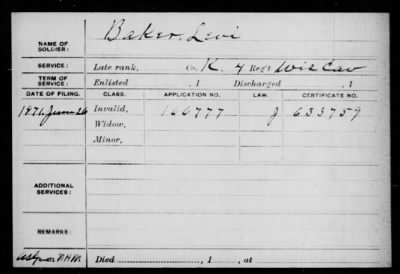 Baker, Levi
NAME OF SOLDIER:
SERVICE: Late rank, Co. K. 4 Reg't Wis Cav
TERM OF SERVICE: Enlisted , 1 Discharged , 1
DATE OF FILING. CLASS. APPLICATION NO. LAW. CERTIFICATE NO.
Invalid, 166777 J 633759
Widow,
Minor,
ADDITIONAL SERVICES:
REMARKS:
Died , 1 , at